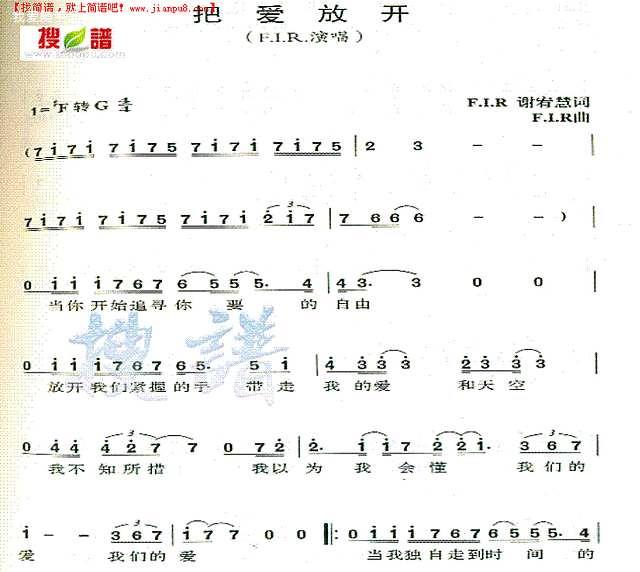 【找简谱，就上简谱吧！www.jianpu8.
把爱放开
搜谱
（F.I.R.演唱）
1=♯F转G 4/4
F.I.R 谢宥慧词
F.I.R曲
(7i7i 7i75 7i7i 7i75 | 2 3 - - |
7i7i 7i75 7i7i 2i7 | 7 6 6 6 - - ) |
0 i i i 7 6 7 6 5 5 5. 4 | 4 3. 3 0 0 |
当你开始追寻你要的自由
搜谱
0 i i i 7 6 7 6 5. 5 i | 4 3 3 3 2 3 3 3 |
放开我们紧握的手 带走我的爱 和天空
0 4 4 4 2 7 7 0 7 2 | 2. i i 7 2 2 i. 3 6 7 |
我不知所措 我以为我会懂 我们的
i - - 3 6 7 | i 7 7 0 0 ‖: 0 i i i 7 6 7 6 5 5 5. 4 |
爱 我们的爱 当我独自走到时间的